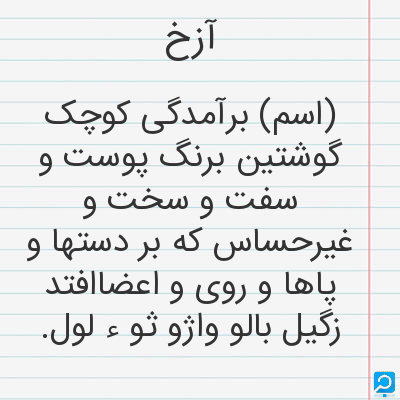 آزخ
(اسم) برآمدگی کوچک
گوشتین برنگ پوست و
سفت و سخت و
غیرحساس که بر دستها و
پاها و روی و اعضاافتد
زگیل بالو واژو ثو ء لول.